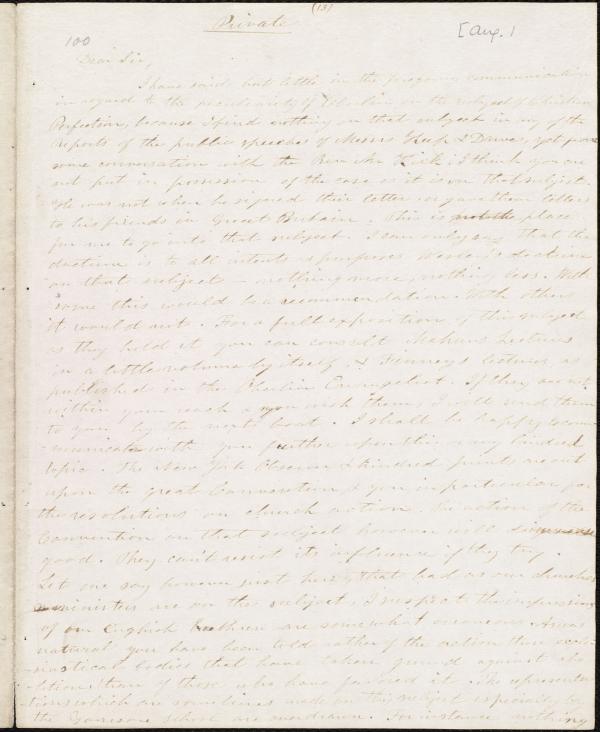 (13)
Private
100
[Aug.]
Dear Sir,
I have said but little in the foregoing communication
in regard to the peculiarity of Oberlin on the subject of Christian
Perfection, because I find nothing on that subject in any of the
reports of the public speeches of Messrs Keep & Dawes, yet from
some conversation with the Rev. Mr Kirk, I think you are
not put in possession of the case as it is on that subject.
He was not when he signed their letter or gave them letters
to his friends in Great Britain. This is not the place
for me to go into that subject. I can only say that the
doctrine is to all intents & purposes Wesley's doctrine
on that subject — nothing more, nothing less. With
some this would be a recommendation. With others
it would not. For a full exposition of this subject
as they hold it you can consult Mahan's Lectures
in a little volume by itself, & Finney's lectures as
published in the Oberlin Evangelist. If they are not
within your reach & you wish them, I will send them
to you by the next boat. I shall be happy to com-
municate with you further upon this or any kindred
topic. The New York Observer & kindred prints are out
upon the great Convention & you in particular for
the resolutions on church action. The action of the
Convention on that subject however will do
good. They can't resist its influence if they try.
Let me say however just here, that bad as our churches
& ministers are on this subject, I suspect the impressions
of our English brethren are somewhat erroneous. As was
natural you have been told rather of the action those eccle-
siastical bodies that have taken ground against abo-
lition, than of those who have favored it. The representa-
tions which are sometimes made on this subject especially by
the Garrison school are overdrawn. For instance nothing